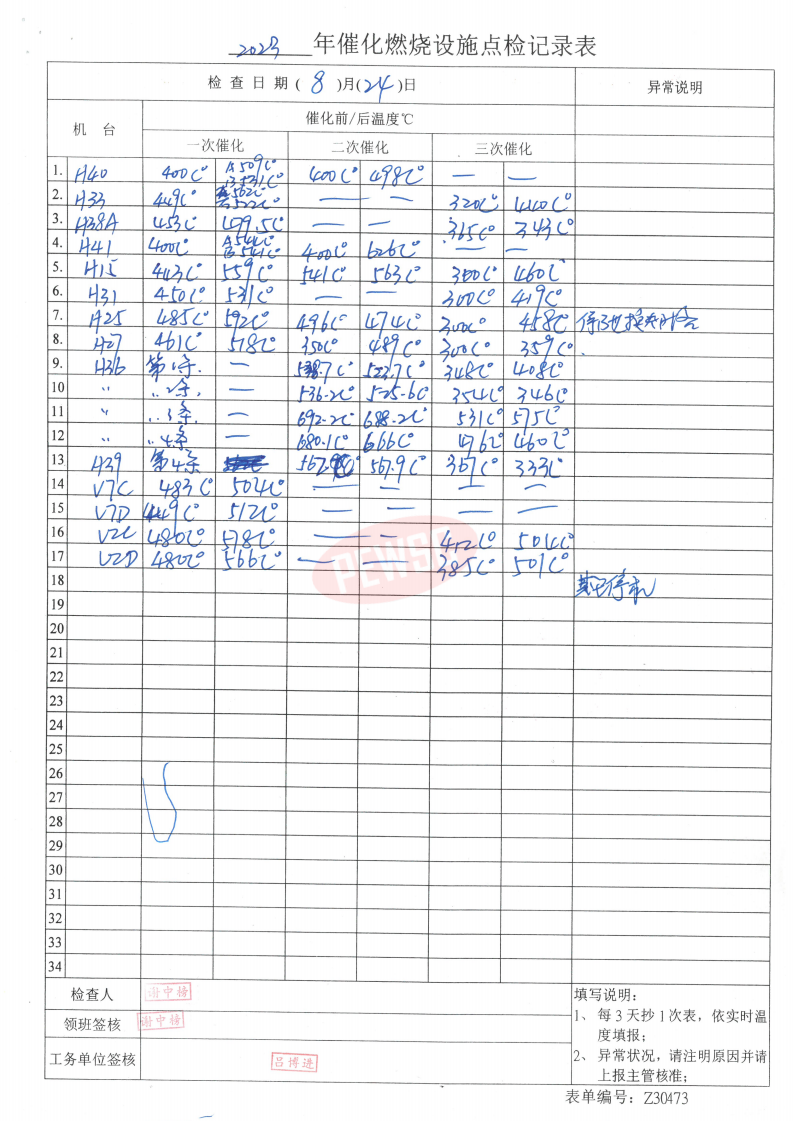 2023 年催化燃烧设施点检记录表
检查日期(8)月(24)日 异常说明
机台 催化前/后温度℃
一次催化 二次催化 三次催化
1. H40 400C° A509C° B531C° 400C° 498C° — —
2. H33 449C° 562C° 522C° — — 320C° 440C°
3. H38A 453C° 499.5C° — — 365C° 343C°
4. H41 400C° A544C° B541C° 400C° 626C° — —
5. H15 443C° 559C° 541C° 563C° 300C° 460C°
6. H31 450C° 531C° — — 300C° 419C°
7. H25 485C° 592C° 496C° 474C° 300C° 458C°
8. H27 461C° 518C° 350C° 489C° 300C° 359C°
9. H36 第1条 — 538.7C° 523.7C° 348C° 408C°
10 〃 ..2条. — 536.2C° 525.6C° 354C° 346C°
11 〃 ..3条. — 692.2C° 688.2C° 531C° 575C°
12 〃 〃4条 — 680.1C° 666C° 476C° 460C°
13 H39 第4条 567.9C° 367C° 333C°
14 V7C 483C° 504C° — — — —
15 V7D 449C° 512C° — — — —
16 V2C 480C° 518C° — — 412C° 504C°
17 V2D 480C° 566C° — — 385C° 501C°
PEWSC
18
19
20
21
22
23
24
25
26
27
28
29
30
31
32
33
34
检查人 谢中榜
领班签核 谢中榜
工务单位签核 吕博进
填写说明:
1、每3天抄1次表，依实时温
度填报;
2、异常状况，请注明原因并请
上报主管核准;
表单编号：Z30473